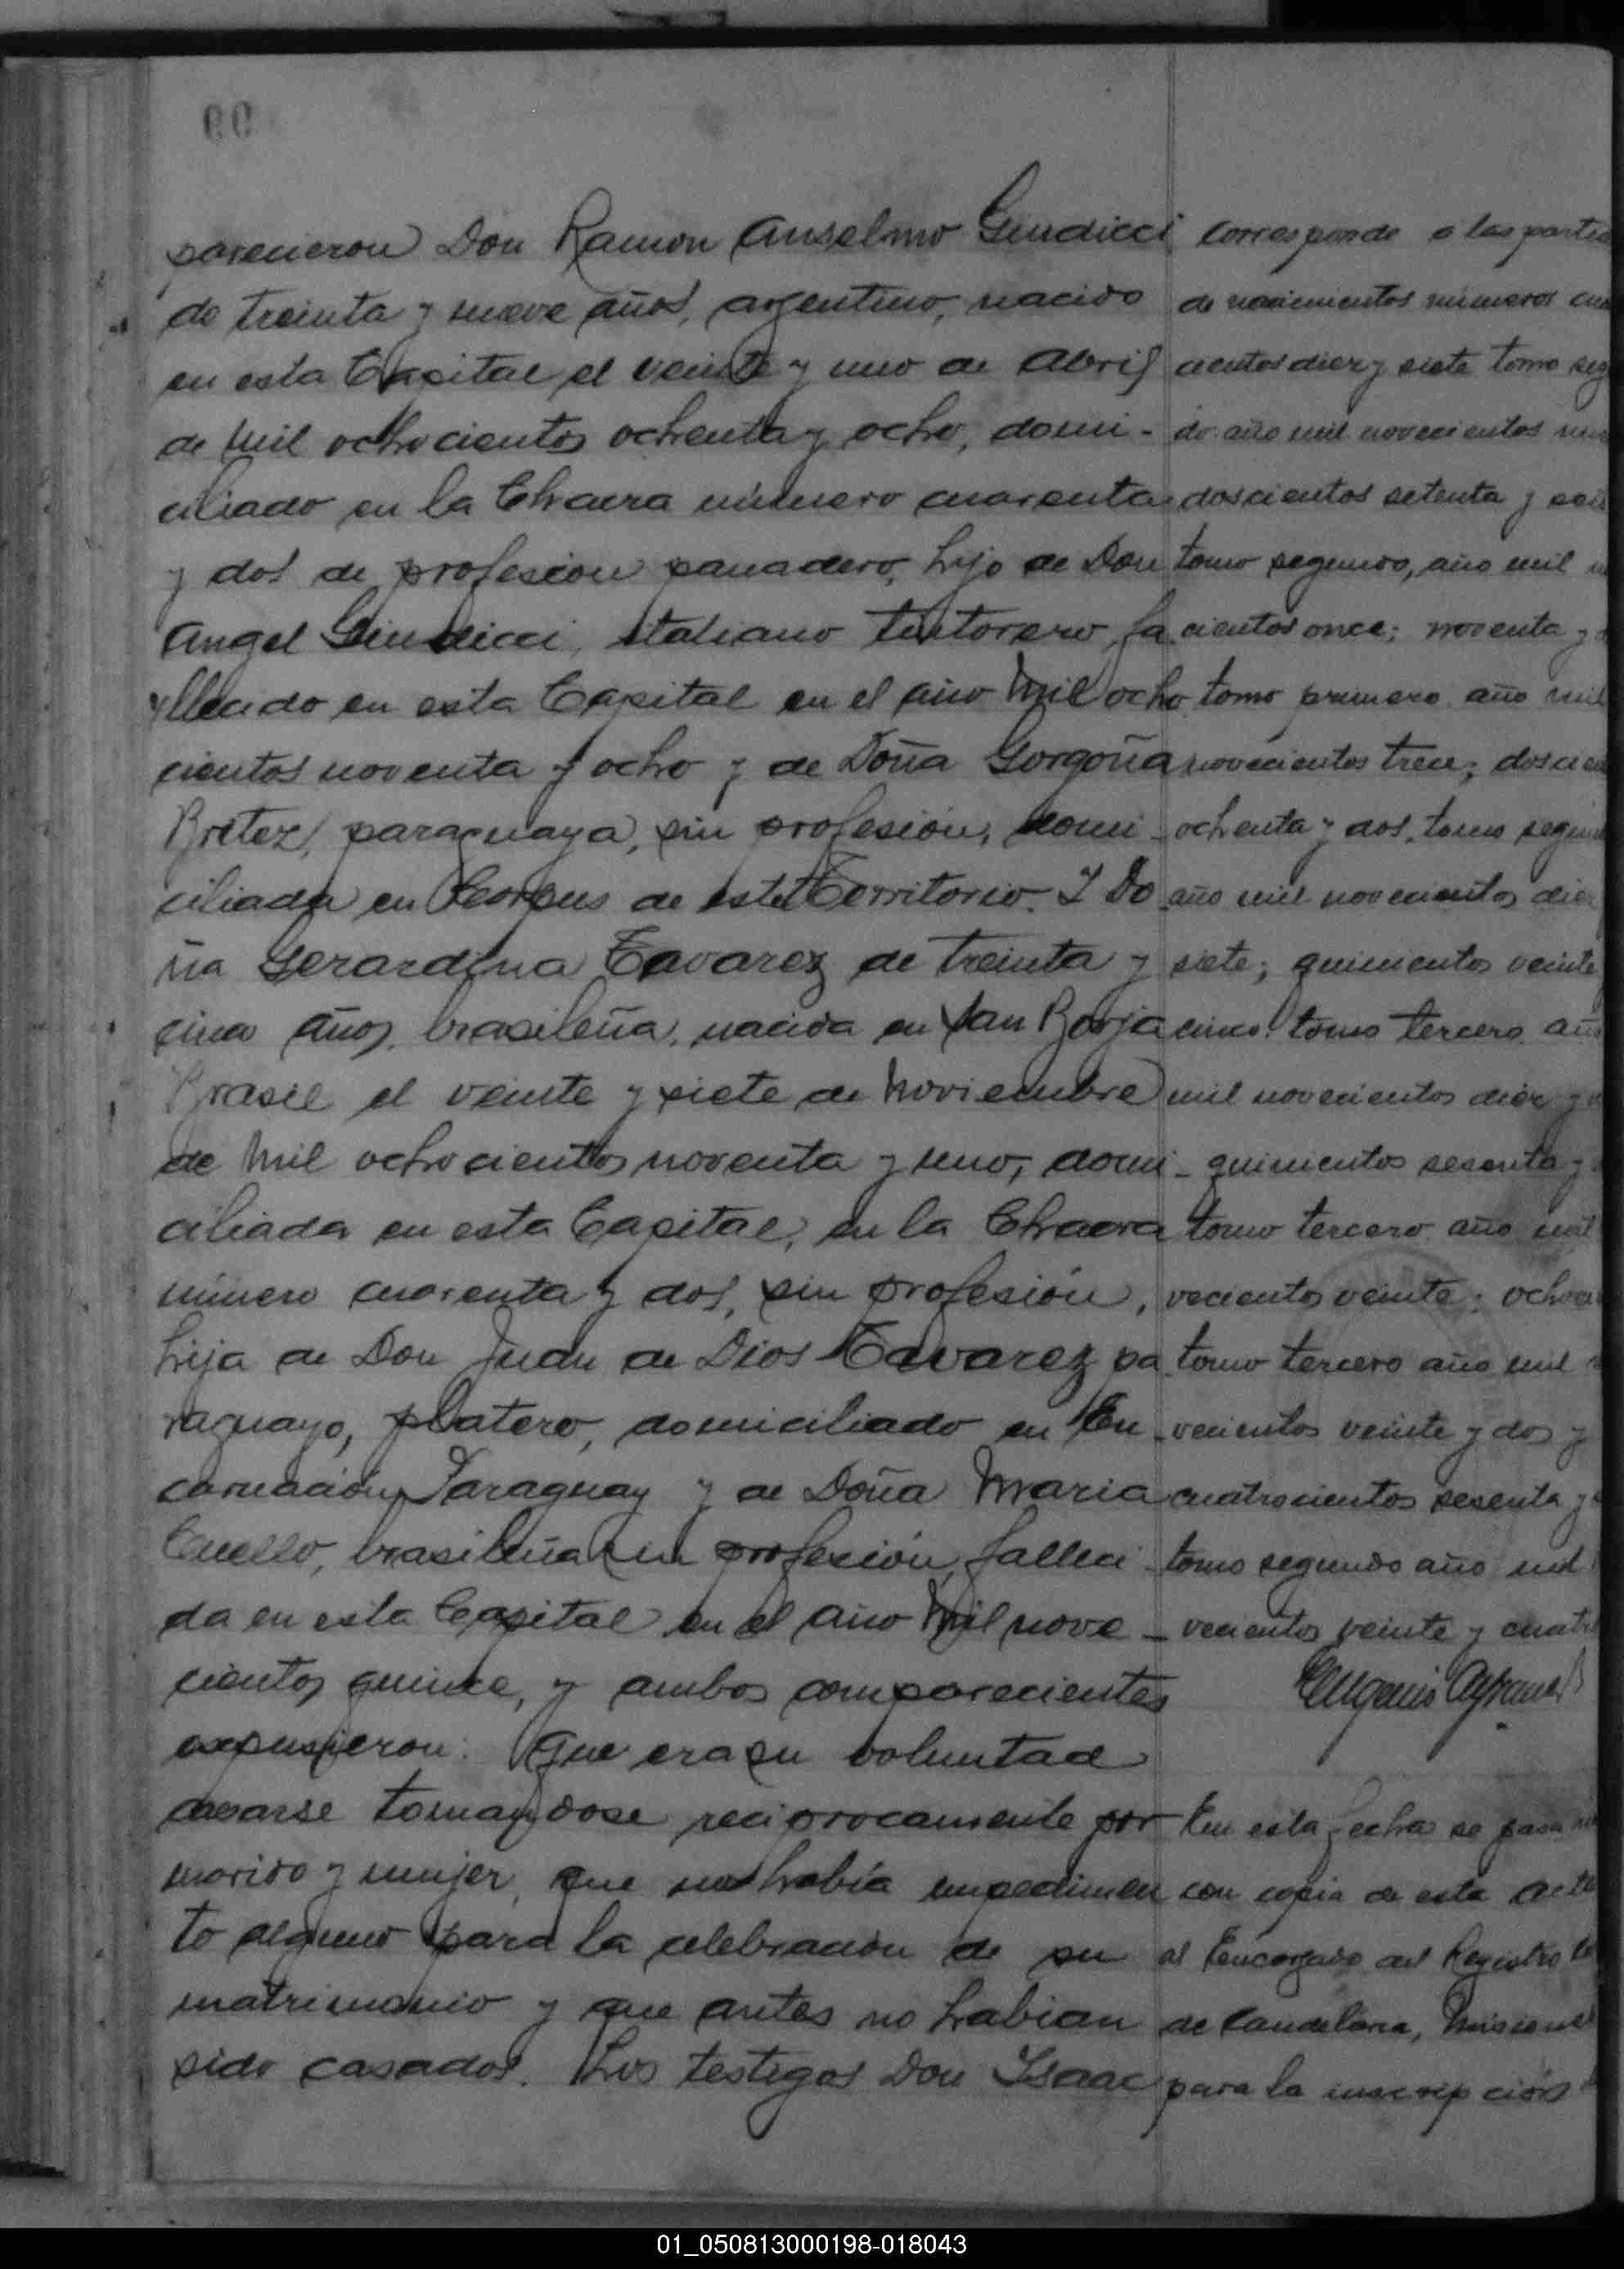 parecieron Don Ramon Anselmo Giudicci
de treinta y nueve años, argentino, nacido
en esta Capital el veinte y uno de Abril
de mil ochocientos ochenta y ocho, domi-
ciliado en la Chacra número cuarenta
y dos de profesion panadero, hijo de Don
Angel Giudicci, italiano tintorero, fa
llecido en esta Capital en el año mil ocho
cientos noventa y ocho y de Doña Gorgoña
Britez, paraguaya, sin profesión, domi-
ciliada en Corpus de este Territorio. Y Do
ña Gerardina Tavarez de treinta y
cinco años, brasileña, nacida en San Borja
Brasil el veinte y siete de Noviembre
de mil ochocientos noventa y uno, domi-
ciliada en esta Capital, en la Chacra
número cuarenta y dos, sin profesión,
hija de Don Juan de Dios Tavarez pa
raguayo, platero, domiciliado en En-
carnación Paraguay y de Doña Maria
Cuello, brasileña sin profesión, falleci-
da en esta Capital en el año mil nove-
cientos quince, y ambos comparecientes
expusieron: Que era su voluntad
casarse tomandose reciprocamente por
marido y mujer, que no había impedimen
to alguno para la celebración de su
matrimonio y que antes no habian
sido casados. Los testigos Don Isaac
corresponde a las partid
de nacimientos números cua
cientos diez y siete tomo seg
do año mil novecientos nue
doscientos setenta y seis
tomo segundo, año mil
cientos once; noventa y
tomo primero año mil
novecientos trece; doscien
ochenta y dos, tomo segun
año mil novecientos diez
siete; quinientos veinte
cinco tomo tercero año
mil novecientos diez y
quinientos sesenta y
tomo tercero año mil
vecientos veinte; ochoci
tomo tercero año mil
vecientos veinte y dos y
cuatrocientos sesenta y
tomo segundo año mil
vecientos veinte y cuatro
Eugenio
En esta fecha se pasa
con copia de esta acta
al Encargado del Registro
de Candelaria, Misiones
para la inscripción
01_050813000198-018043